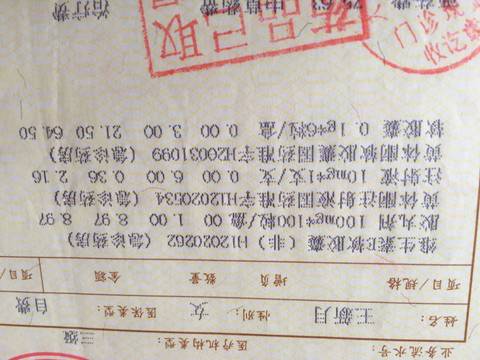 业务流水号: 医疗机构类型: 三级
姓名: 王新月 性别: 女 医保类型: 自费
项目/规格 增负 数量 金额 项目/
维生素E软胶囊(非) H12020262 (急诊药房)
丸丸剂 100mg*100粒/盒 0.00 1.00 8.97 8.97
黄体酮注射液国药准字H12020534 (急诊药房)
注射液 10mg*1支/支 0.00 6.00 0.36 2.16
黄体酮软胶囊国药准字H20031099 (急诊药房)
软胶囊 0.1g*6粒/盒 0.00 3.00 21.50 64.50
药品已取
门诊 收讫
治疗费